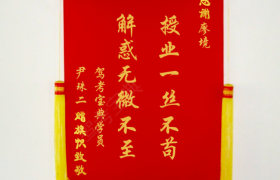 感谢廖境
授业一丝不苟
解惑无微不至
驾考宝典学员
尹珠二赠旗帜致敬